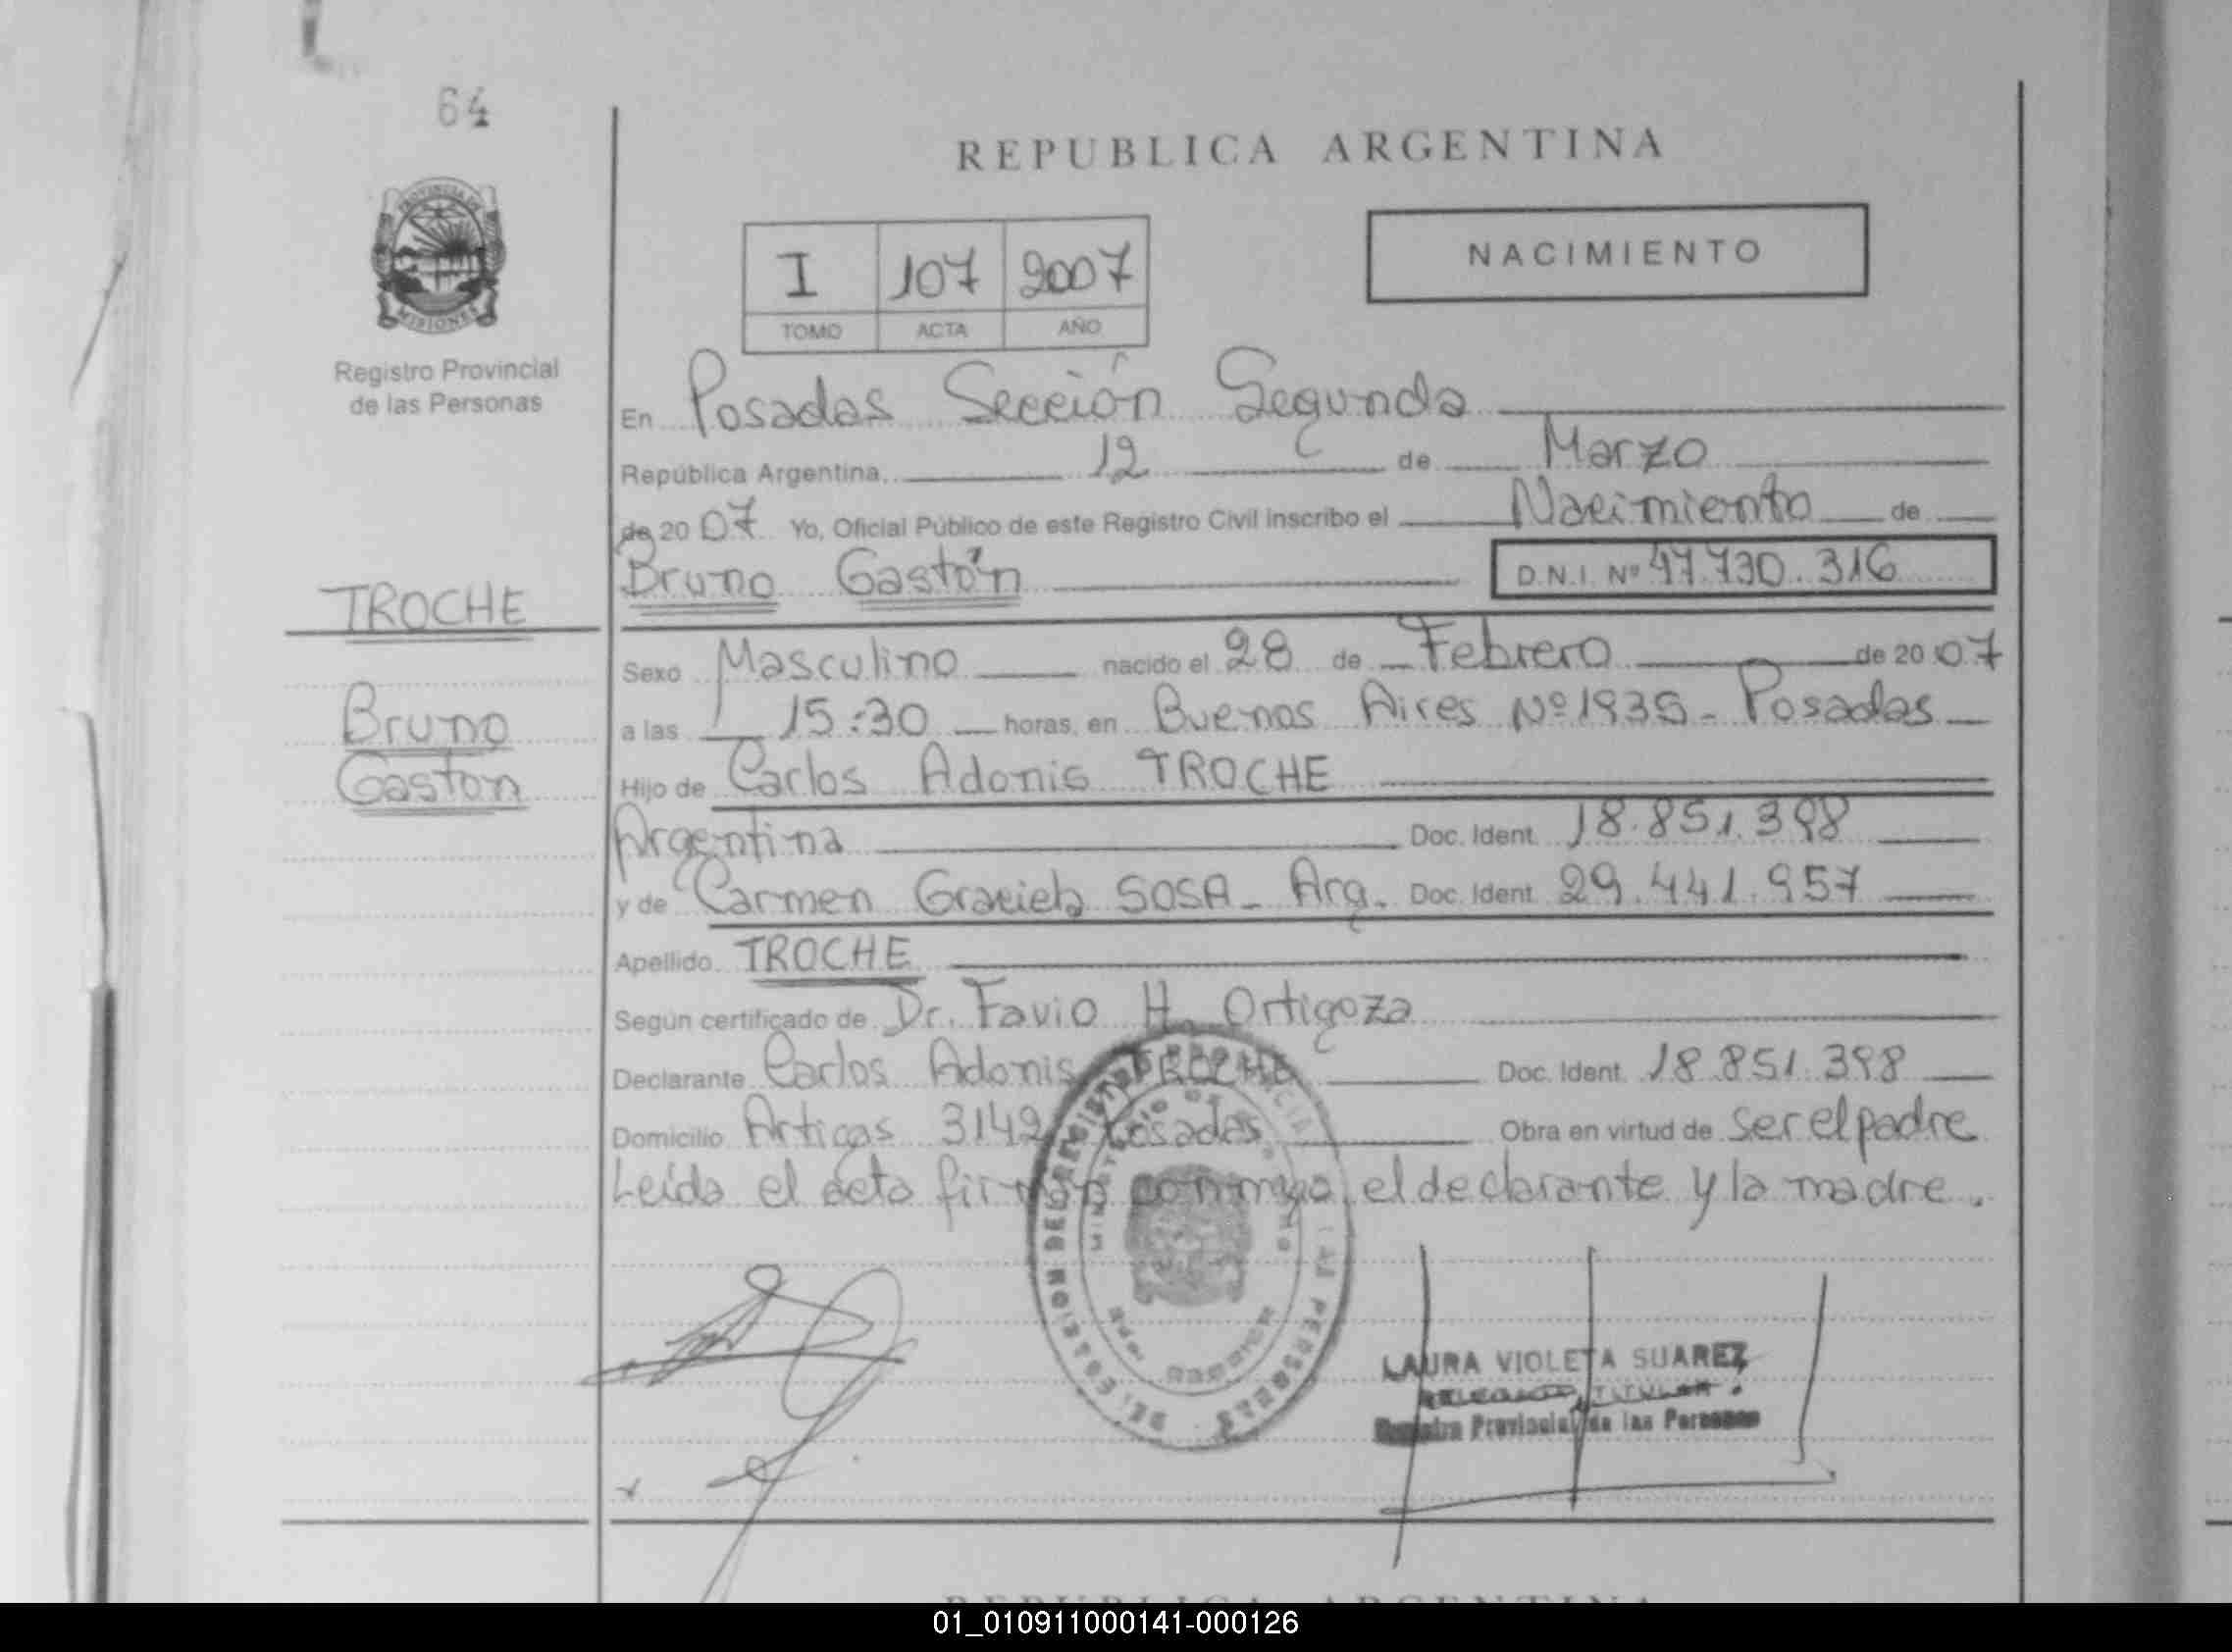 64
REPUBLICA ARGENTINA
PROVINCIA DE
MISIONES
I 107 2007
TOMO ACTA AÑO
NACIMIENTO
Registro Provincial
de las Personas
En Posadas Sección Segunda
República Argentina, 12 de Marzo
de 2007 Yo, Oficial Público de este Registro Civil inscribo el Nacimiento de
Bruno Gastón D.N.I. Nº 47.730.316
TROCHE
Sexo Masculino nacido el 28 de Febrero de 2007
Bruno
a las 15:30 horas, en Buenos Aires Nº 1935 - Posadas
Gaston
Hijo de Carlos Adonis TROCHE
Argentina Doc. Ident. 18.851.398
y de Carmen Graciela SOSA - Arg. Doc. Ident. 29.441.957
Apellido TROCHE
Según certificado de Dr. Favio H. Ortigoza
Declarante Carlos Adonis TROCHE Doc. Ident. 18.851.398
Domicilio Artigas 3142 Posadas Obra en virtud de ser el padre
Leída el acta firman conmigo el declarante y la madre.
LAURA VIOLETA SUAREZ
TITULAR
Registro Provincial de las Personas
REPUBLICA ARGENTINA
01_010911000141-000126